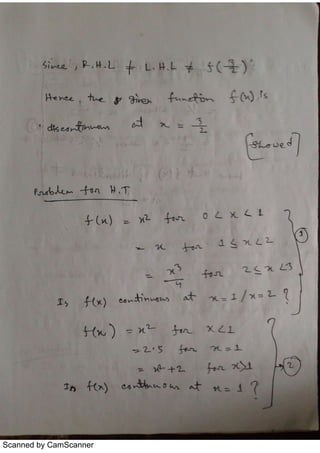 Since, R.H.L ≠ L.H.L ≠ f(3/2)
Hence, the given function f(x) is
discontinuous at x = 3/2
[Showed]
Problem for H.T
f(x) = x² for 0 < x < 1
= x for 1 ≤ x < 2
= x³/4 for 2 ≤ x < 3
Is f(x) continuous at x = 1 / x = 2 ?
1
f(x) = x² for x < 1
= 2.5 for x = 1
= x² + 2 for x > 1
Is f(x) continuous at x = 1 ?
2
Scanned by CamScanner